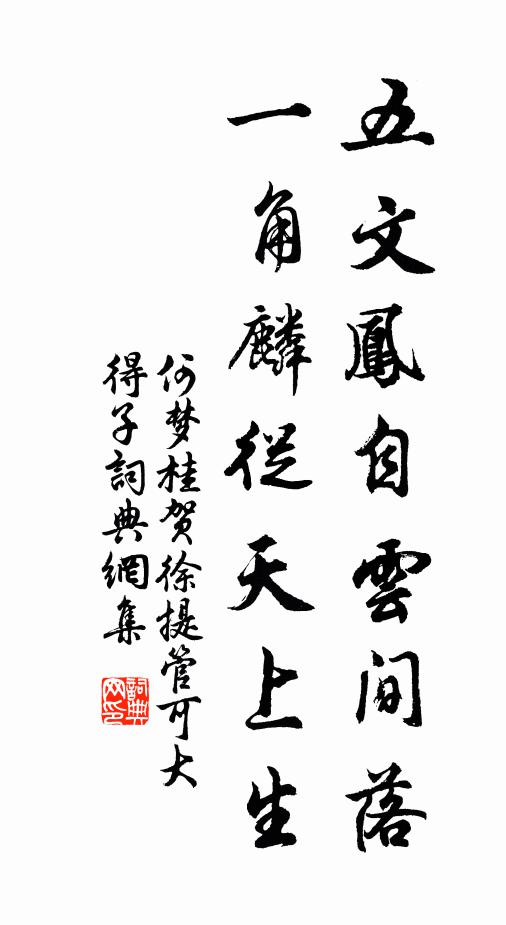 五文鳳自雲間落
一角麟從天上生
何梦桂贺徐提管可大
得子詞典網集
詞典網印